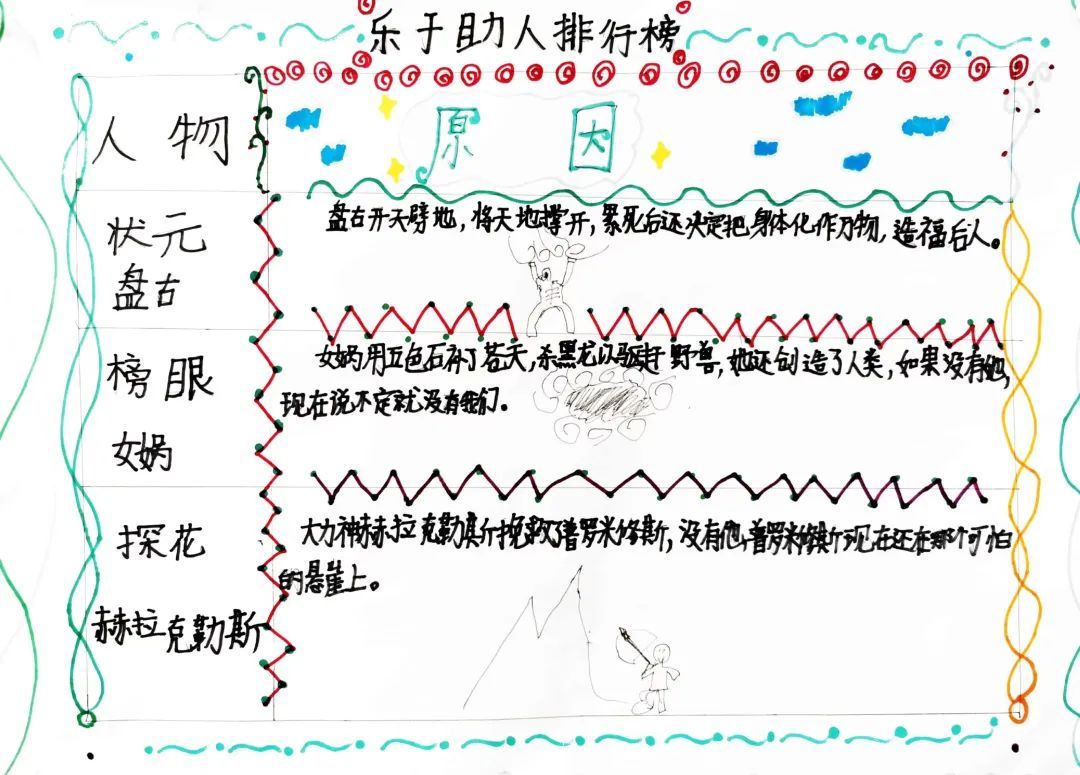 乐于助人排行榜
人物
原因
状元
盘古
盘古开天劈地，将天地撑开，累死后还决定把身体化作万物，造福后人。
榜眼
女娲
女娲用五色石补了苍天，杀黑龙以驱赶野兽，她还创造了人类，如果没有她，
现在说不定就没有我们。
探花
赫拉克勒斯
大力神赫拉克勒斯挽救了普罗米修斯，没有他，普罗米修斯现在还在那个可怕
的悬崖上。